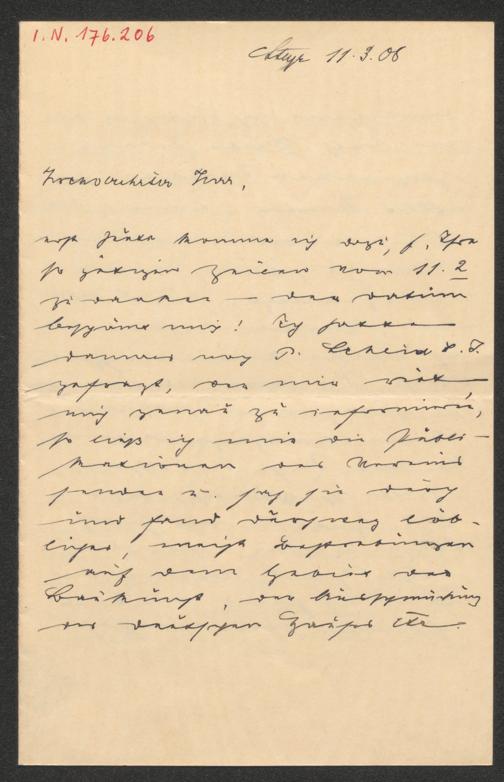 I. N. 176.206
Steyr 11.3.06
Hochverehrter Herr,
erst heute komme ich dazu, f. Ihre
so gütigen Zeilen vom 11. 2
zu danken — das Datum
beschämt mich! Ich hatte
damals noch P. Scheid S. J.
gefragt, der mir riet
mich genau zu informieren,
so ließ ich mir die Publi-
kationen des Vereins
senden u. sah sie durch
und fand durchweg löb-
liches, meist Bestrebungen
auf dem Gebiet der
Baukunst, der Ausschmückung
des deutschen Hauses etc.